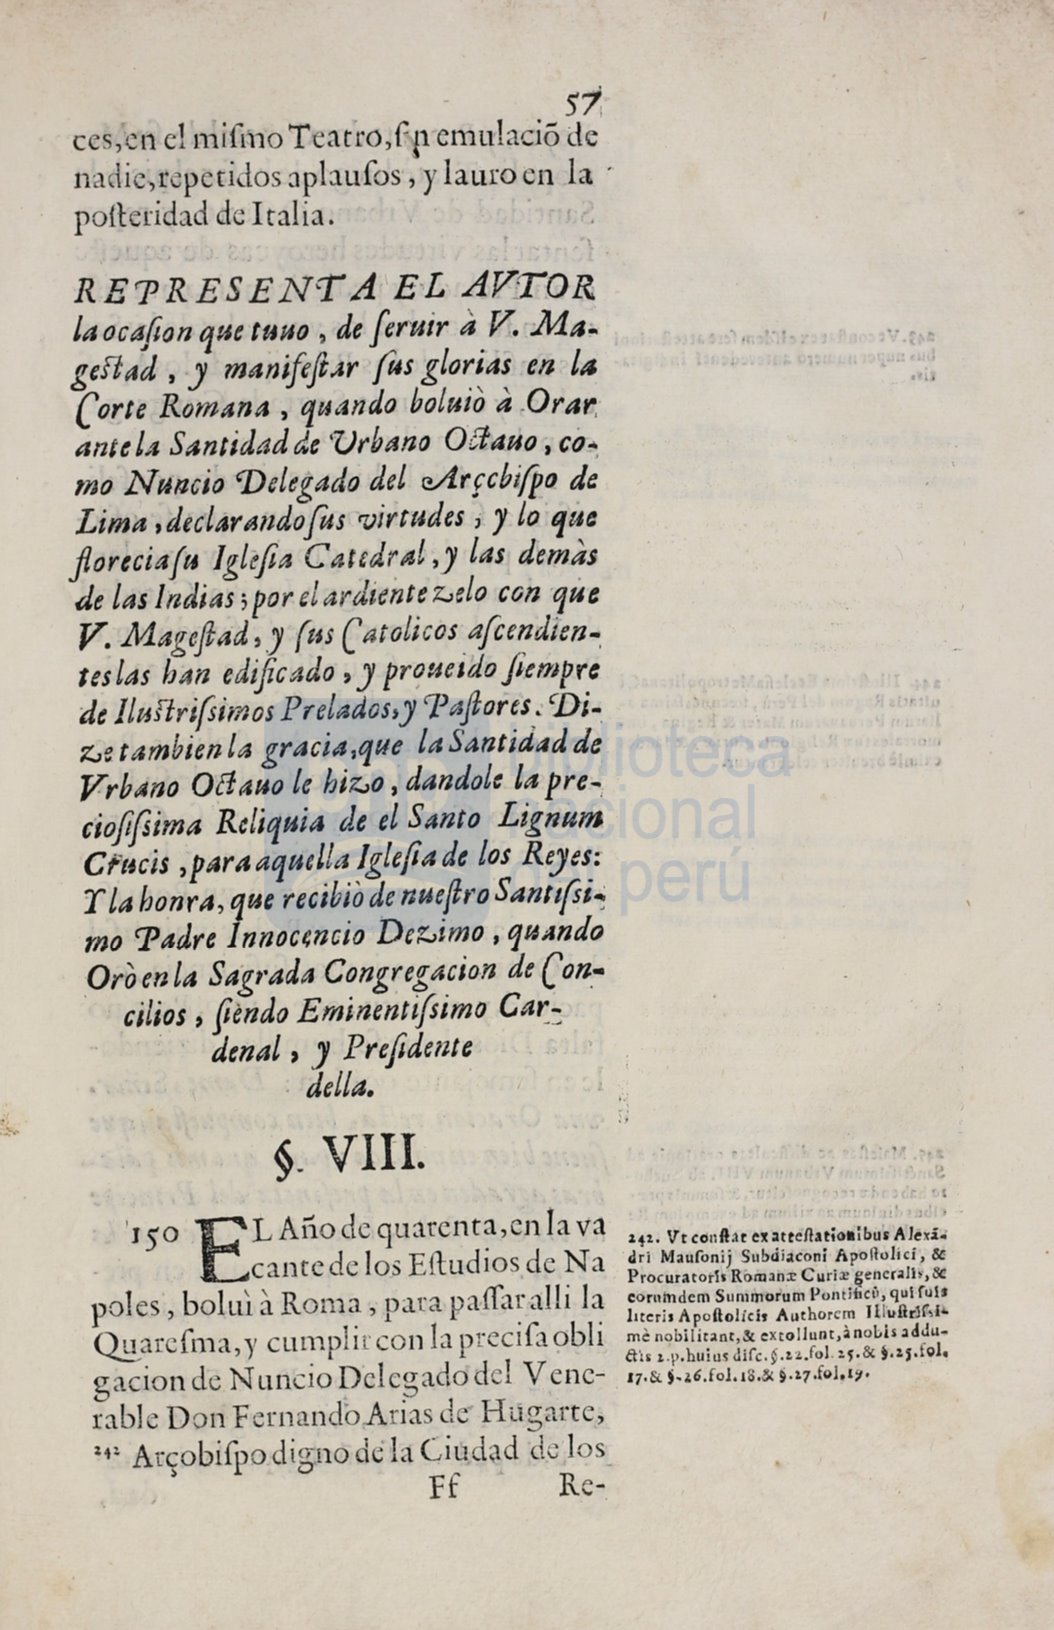 57
ces, en el miſmo Teatro, ſin emulaciõ de
nadie, repetidos aplauſos, y lauro en la
poſteridad de Italia.
REPRESENTA EL AVTOR
la ocaſion que tuuo, de ſeruir à V. Ma-
geſtad, y manifeſtar ſus glorias en la
Corte Romana, quando boluiò à Orar
ante la Santidad de Vrbano Octauo, co-
mo Nuncio Delegado del Arçcbiſpo de
Lima, declarando ſus virtudes, y lo que
florecia ſu Igleſia Catedral, y las demàs
de las Indias; por el ardiente zelo con que
V. Mageſtad, y ſus Catolicos aſcendien-
tes las han edificado, y proueido ſiempre
de Iluſtriſsimos Prelados, y Paſtores. Di-
ze tambien la gracia, que la Santidad de
Vrbano Octauo le hizo, dandole la pre-
cioſiſsima Reliquia de el Santo Lignum
Crucis, para aquella Igleſia de los Reyes:
Y la honra, que recibiò de nueſtro Santiſsi-
mo Padre Innocencio Dezimo, quando
Orò en la Sagrada Congregacion de Con-
cilios, ſiendo Eminentiſsimo Car-
denal, y Preſidente
della.
§. VIII.
150 EL Año de quarenta, en la va
cante de los Eſtudios de Na
poles, boluì à Roma, para paſſar alli la
Quareſma, y cumplir con la preciſa obli
gacion de Nuncio Delegado del Vene-
rable Don Fernando Arias de Hugarte,
242 Arçobiſpo digno de la Ciudad de los
Ff Re-
242. Vt conſtat ex atteſtationibus Alexã-
dri Mauſonij Subdiaconi Apoſtolici, &
Procuratoris Romanæ Curiæ generalis, &
eorumdem Summorum Pontificũ, qui ſuis
literis Apoſtolicis Authorem Illuſtriſsi-
mè nobilitant, & extollunt, à nobis addu-
ctis 2. p. huius diſc. §. 22. fol. 25. & §. 25. fol.
17. & §. 26. fol. 18. & §. 27. fol. 19.
biblioteca
nacional
perú